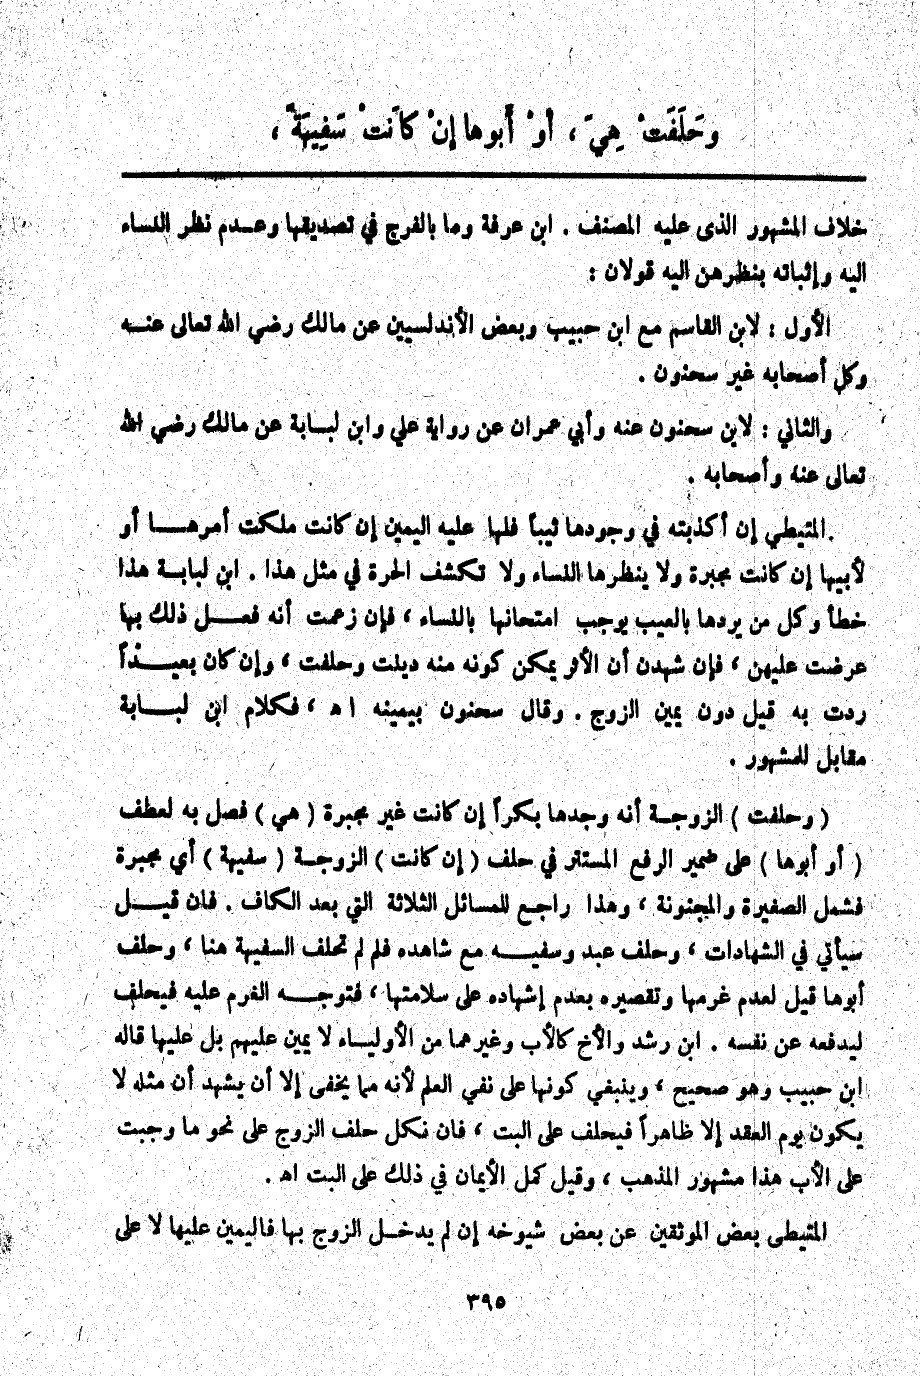 وحَلَفَتْ هِيَ ، أوْ أَبوها إنْ كانَتْ سَفِيهَةً ،
خلاف المشهور الذى عليه المصنف . ابن عرفة وما بالفرج في تصديقها وعـدم نظر النساء
اليه وإثباته بنظرهن اليه قولان :
الأول : لابن القاسم مـع ابن حبيب وبعض الأندلسيين عن مالك رضي الله تعالى عنـه
وكل أصحابه غير سحنون .
والثالي : لابن سحنون عنه وأبي عمران عن رواية علي وابن لبـابة عن مالك رضي الله
تعالى عنه وأصحابه .
المتيطي إن أكذبته في وجودها ثيباً فلها عليه اليمين إن كانت ملكت أمرهـا أو
لأبيها إن كانت مجبرة ولا ينظرها النساء ولا تكشف الحرة في مثل هذا . ابن لبابـة هذا
خطأ وكل من يردها بالعيب يوجب امتحانها بالنساء ، فإن زعمت أنه فعـل ذلك بها
عرضت عليهن ، فإن شهدن أن الأثر يمكن كونه منه دينت وحلفت ، وإن كان بعيـداً
ردت به قيل دون يمين الزوج . وقال سحنون بيمينه ا ه ، فكلام ابن لبـابة
مقابل للمشهور .
( وحلفت ) الزوجـة أنه وجدها بكراً إن كانت غير مجبرة ( هي ) فصل به لعطف
( أو أبوها ) على ضمير الرفع المستتر في حلف ( إن كانت ) الزوجـة ( سفيهة ) أي مجبرة
فشمل الصغيرة والمجنونة ، وهذا راجـع للمسائل الثلاثة التي بعد الكاف . فان قيـل
سيأتي في الشهادات ، وحلف عبد وسفيـه مـع شاهده فلم لم تحلف السفيهة هنا ، وحلف
أبوها قيل لعدم غرمها وتقصيره بعدم إشهاده على سلامتها ، فتوجـه الغرم عليه فيحلف
ليدفعه عن نفسه . ابن رشد والأخ كالأب وغيرهما من الأوليـاء لا يمين عليهم بل عليها قاله
ابن حبيب وهو صحيح ، وينبغي كونها على نفي العلم لأنه مما يخفى إلا أن يشهد أن مثله لا
يكون يوم العقد إلا ظاهراً فيحلف على البت ، فان نكل حلف الزوج على نحو ما وجبت
على الأب هذا مشهور المذهب ، وقيل كمل الأيمان في ذلك على البت اه .
المتيطى بعض الموثقين عن بعض شيوخه إن لم يدخـل الزوج بها فاليمين عليها لا على
٣٩٥